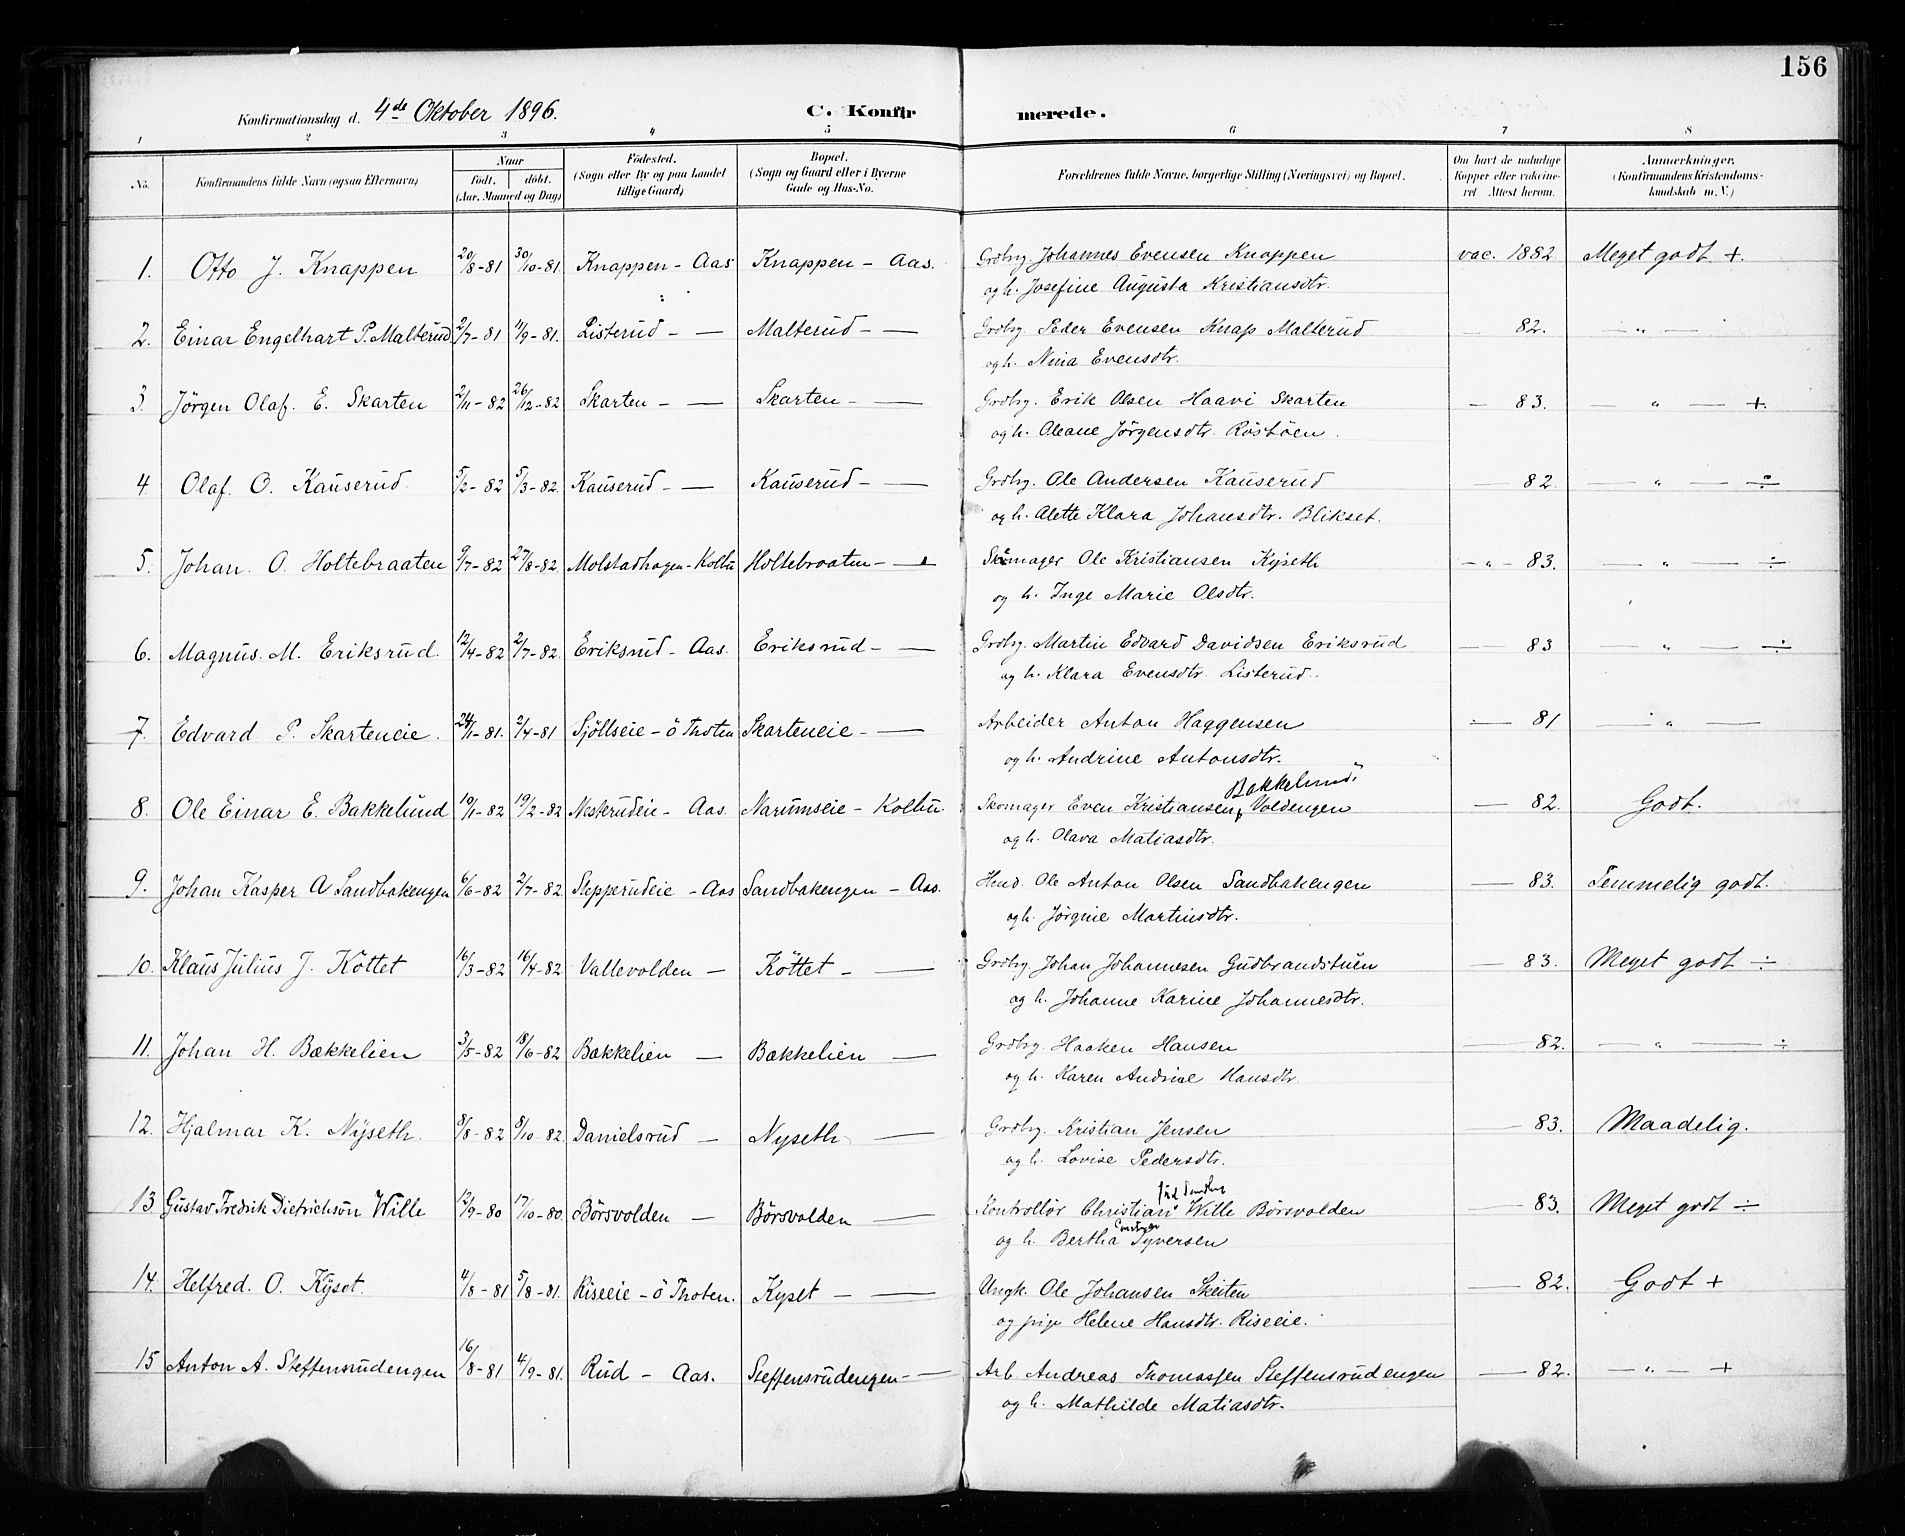 156
Konfirmationsdag d. 4de Oktober 1896. C. Konfirmerede.
1 2 3 4 5 6 7 8
No. Konfirmandens fulde Navn (ogsaa Efternavn) Naar født, døbt. (Aar, Maaned og Dag) Fødested. (Sogn eller By og paa Landet tillige Gaard) Bopæl. (Sogn og Gaard eller i Byerne Gade og Hus-No. Forældrenes fulde Navne, borgerlige Stilling (Næringsvei) og Bopæl. Om havt de naturlige Kopper eller vaccineret Attest herom. Anmærkninger. (Konfirmandens Kristendomskundskab m. V.)
1. Otto J. Knappen 20/8-81 30/10-81. Knappen - Aas Knappen - Aas. Grdbrg. Johannes Evensen Knappen vac. 1882 Meget godt +.
og h. Josefine Augusta Kristiansdtr.
2. Einar Engelhart P. Malterud 2/7-81 11/9-81. Listerud - — Malterud - — Grdbrg. Peder Evensen Knap Malterud — 82. — " —
og h. Nina Evensdtr.
3. Jörgen Olaf. E. Skarten 2/11-82 26/12-82 Skarten - — Skarten - — Grdbrg. Erik Olsen Haavi Skarten — 83. — " — +.
og h. Oleane Jörgensdtr. Röstöen.
4. Olaf. O. Kauserud. 5/2-82 5/3-82. Kauserud - — Kauserud - — Grdbrg. Ole Andersen Kauserud — 82. — " — ÷
og h. Alette Klara Johansdtr. Blikset.
5. Johan. O. Holtebraaten 9/7-82 27/8-82. Molstadhagen - Kolbu Holtebraaten - — Skomager Ole Kristiansen Kyseth - " - 83. — " — ÷
og h. Inge Marie Olsdtr.
6. Magnus. M. Eriksrud. 12/4-82 2/7-82. Eriksrud - Aas. Eriksrud - — Grdbrg. Martin Edvard Davidsen Eriksrud — 83 — " — ÷
og h. Klara Evensdtr. Listerud.
7. Edvard P. Skarteneie. 24/1-81. 2/4-81 Sjöllseie - ö Thoten Skarteneie - — Arbeider Anton Haggensen — 81 — " —
og h. Andrine Antonsdtr.
Bakkelund
8. Ole Einar E. Bakkelund 10/1-82 19/2-82 Neskrudeie - Aas. Narumseie - Kolbu. Skomager Even Kristiansen, Voldengen — 82. Godt.
og h. Olava Matiasdtr.
9. Johan Kasper A Sandbakengen 6/6-82 2/7-82. Stepperudeie - Aas Sandbakengen - Aas. Hmd. Ole Anton Olsen Sandbakengen — 83. Temmelig godt.
og h. Jörgine Martinsdtr.
10. Klaus Julius J. Köttet 16/3-82 16/4-82 Vallevolden - Köttet - — Grdbrg Johan Johannesen Gudbrandstuen — 83. Meget godt ÷
og h. Johanne Karine Johannesdtr.
11. Johan H. Bækkelien 3/5-82 18/6-82 Bækkelien - Bækkelien — Grdbrg. Haaken Hansen — 82. — " — ÷
og h. Karen Andrine Hansdtr.
12. Hjalmar K. Nyseth. 8/8-82 8/10-82. Danielsrud - Nyseth — Grdbrg. Kristian Jensen — 83. Maadelig.
og h. Lovise Pedersdtr.
13 Gustav Fredrik Dietrichson Wille 12/9-80 17/10-80. Börsvolden - Börsvolden — Kontrollör Christian Wille Börsvolden — 83. Meget godt ÷
og h. Bertha Syversen
14. Helfred. O. Kyset. 4/8-81 5/8-81. Riseeie - ö Thoten. Kyset - — Ungk. Ole Johansen Skeiten — 82. Godt +
og pige Helene Hansdtr. Riseeie.
15 Anton A. Steffensrudengen 16/8-81 4/9-81. Rud - Aas. Steffensrudengen - — Arb Andreas Thomassen Steffensrudengen — 82. — " — +
og h. Mathilde Matiasdtr.